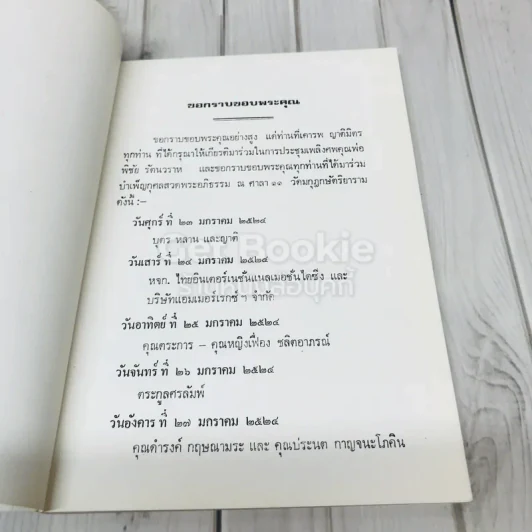 ขอกราบขอบพระคุณ
ขอกราบขอบพระคุณอย่างสูง แด่ท่านที่เคารพ ญาติมิตร
ทุกท่าน ที่ได้กรุณาให้เกียรติมาร่วมในการประชุมเพลิงศพคุณพ่อ
พิชัย รัตนวราห และขอกราบขอบพระคุณทุกท่านที่ได้มาร่วม
บำเพ็ญกุศลสวดพระอภิธรรม ณ ศาลา ๑๑ วัดมกุฎกษัตริยาราม
ดังนี้ :-
วันศุกร์ ที่ ๒๓ มกราคม ๒๕๒๔
บุตร หลาน และญาติ
Get Bookie
วันเสาร์ ที่ ๒๔ มกราคม ๒๕๒๔
หจก. ไทยอินเตอร์เนชั่นแนลเมอชั่นไดซิ่ง และ
ร้านหนังสือบุ๊คกี้
บริษัทแอมเมอร์เรกซ์ ฯ จำกัด
วันอาทิตย์ ที่ ๒๕ มกราคม ๒๕๒๔
คุณตระการ – คุณหญิงเฟื่อง ชลิตอาภรณ์
วันจันทร์ ที่ ๒๖ มกราคม ๒๕๒๔
ตระกูลศรลัมพ์
วันอังคาร ที่ ๒๗ มกราคม ๒๕๒๔
คุณดำรงค์ กฤษณามระ และ คุณประนต กาญจนะโภคิน